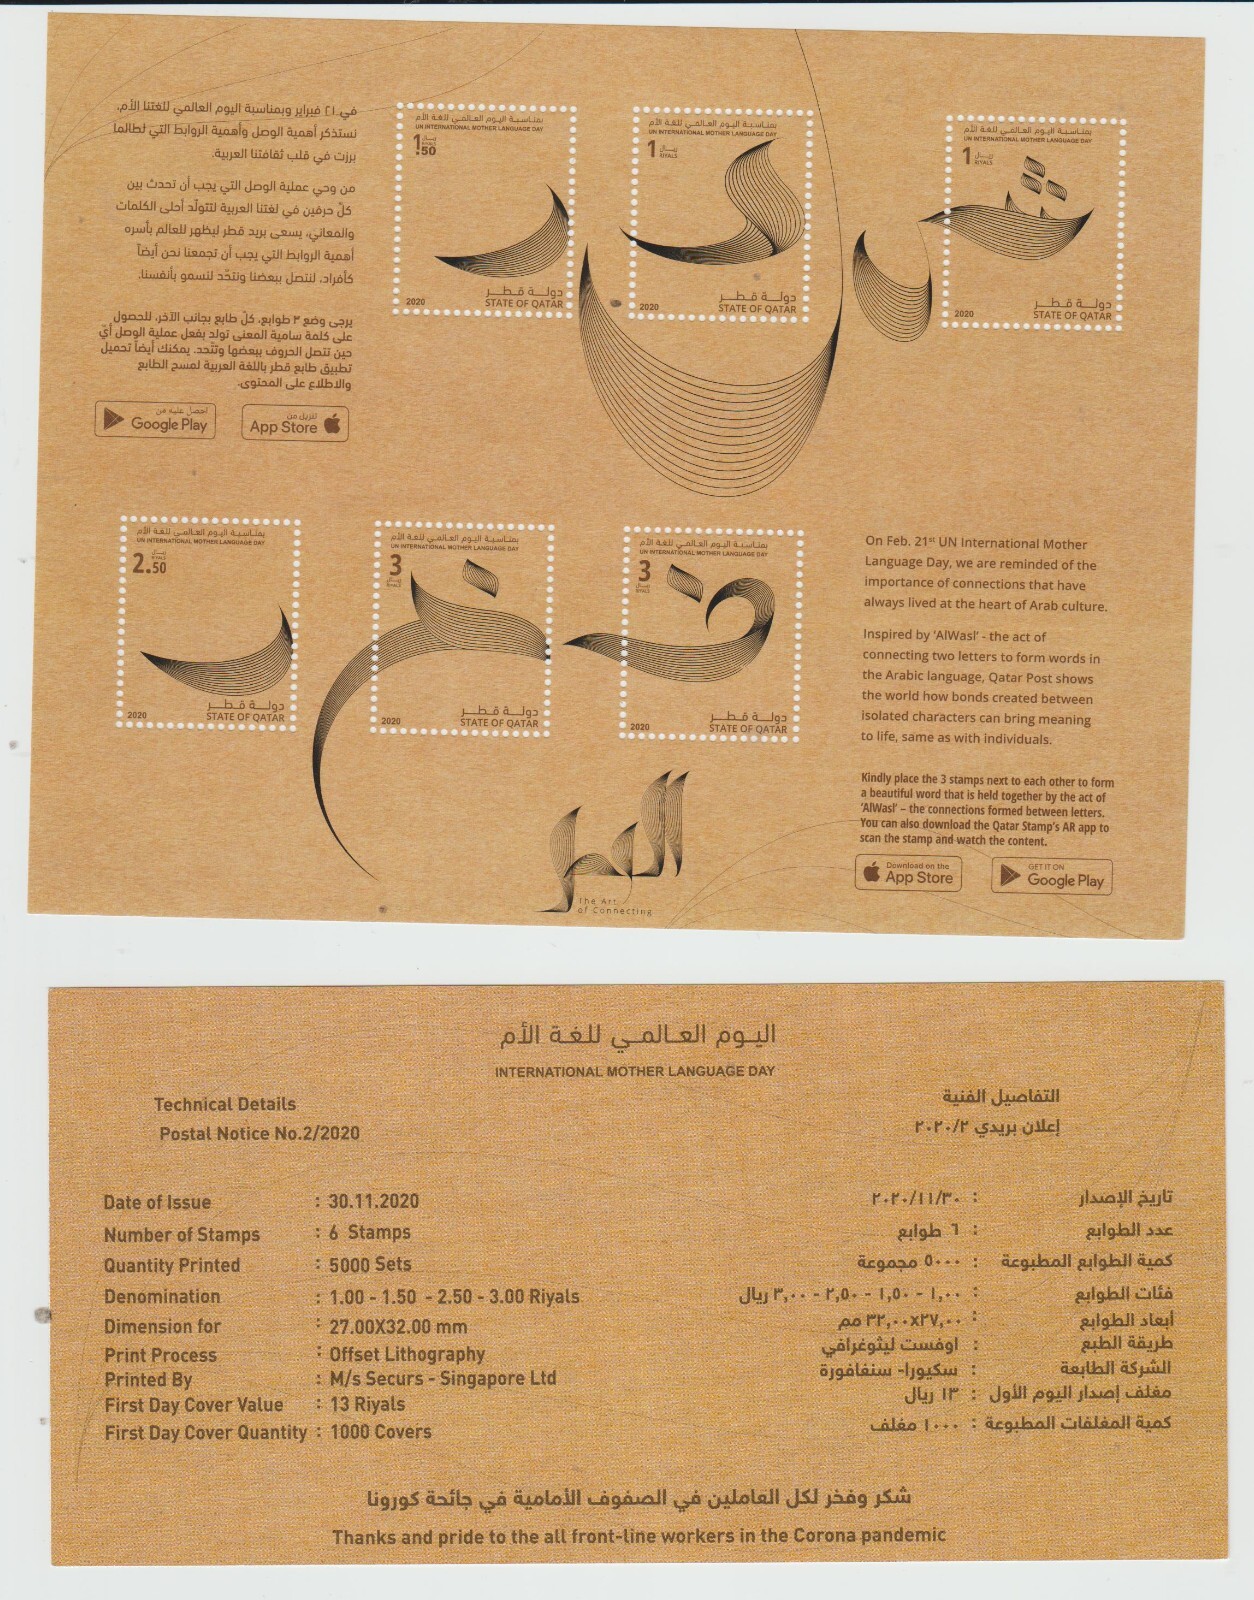 في ٢١ فبراير وبمناسبة اليوم العالمي للغتنا الأم،
نستذكر أهمية الوصل وأهمية الروابط التي لطالما
برزت في قلب ثقافتنا العربية.
من وحي عملية الوصل التي يجب أن تحدث بين
كلّ حرفين في لغتنا العربية لتتولّد أحلى الكلمات
والمعاني، يسعى بريد قطر ليظهر للعالم بأسره
أهمية الروابط التي يجب أن تجمعنا نحن أيضاً
كأفراد، لنتصل ببعضنا ونتحّد لنسمو بأنفسنا.
يرجى وضع ٣ طوابع، كلّ طابع بجانب الآخر، للحصول
على كلمة سامية المعنى تولد بفعل عملية الوصل أيّ
حين تتصل الحروف ببعضها وتتّحد. يمكنك أيضاً تحميل
تطبيق طابع قطر باللغة العربية لمسح الطابع
والاطلاع على المحتوى.
احصل عليه من
Google Play
تنزيل من
App Store
بمناسبة اليوم العالمي للغة الأم
UN INTERNATIONAL MOTHER LANGUAGE DAY
1.50 ريال
RIYALS
دولة قطر
2020 STATE OF QATAR
بمناسبة اليوم العالمي للغة الأم
UN INTERNATIONAL MOTHER LANGUAGE DAY
1 ريال
RIYALS
دولة قطر
2020 STATE OF QATAR
بمناسبة اليوم العالمي للغة الأم
UN INTERNATIONAL MOTHER LANGUAGE DAY
1 ريال
RIYALS
دولة قطر
2020 STATE OF QATAR
بمناسبة اليوم العالمي للغة الأم
UN INTERNATIONAL MOTHER LANGUAGE DAY
2.50 ريال
RIYALS
دولة قطر
2020 STATE OF QATAR
بمناسبة اليوم العالمي للغة الأم
UN INTERNATIONAL MOTHER LANGUAGE DAY
3
ريال
RIYALS
دولة قطر
2020 STATE OF QATAR
بمناسبة اليوم العالمي للغة الأم
UN INTERNATIONAL MOTHER LANGUAGE DAY
3
ريال
RIYALS
دولة قطر
2020 STATE OF QATAR
On Feb. 21st UN International Mother
Language Day, we are reminded of the
importance of connections that have
always lived at the heart of Arab culture.
Inspired by ‘AlWasl’ - the act of
connecting two letters to form words in
the Arabic language, Qatar Post shows
the world how bonds created between
isolated characters can bring meaning
to life, same as with individuals.
Kindly place the 3 stamps next to each other to form
a beautiful word that is held together by the act of
‘AlWasl’ – the connections formed between letters.
You can also download the Qatar Stamp's AR app to
scan the stamp and watch the content.
Download on the
App Store
GET IT ON
Google Play
The Art
of Connecting
اليوم العالمي للغة الأم
INTERNATIONAL MOTHER LANGUAGE DAY
Technical Details
Postal Notice No.2/2020
Date of Issue : 30.11.2020
Number of Stamps : 6 Stamps
Quantity Printed : 5000 Sets
Denomination : 1.00 - 1.50 - 2.50 - 3.00 Riyals
Dimension for : 27.00X32.00 mm
Print Process : Offset Lithography
Printed By : M/s Securs - Singapore Ltd
First Day Cover Value : 13 Riyals
First Day Cover Quantity : 1000 Covers
التفاصيل الفنية
إعلان بريدي ٢٠٢٠/٢
تاريخ الإصدار : ٢٠٢٠/١١/٣٠
عدد الطوابع : ٦ طوابع
كمية الطوابع المطبوعة : ٥٠٠٠ مجموعة
فئات الطوابع : ١,٠٠ - ١,٥٠ - ٢,٥٠ - ٣,٠٠ ريال
أبعاد الطوابع : ٢٧,٠٠x٣٢,٠٠ مم
طريقة الطبع : اوفست ليثوغرافي
الشركة الطابعة : سكيورا- سنغافورة
مغلف إصدار اليوم الأول : ١٣ ريال
كمية المغلفات المطبوعة : ١٠٠٠ مغلف
شكر وفخر لكل العاملين في الصفوف الأمامية في جائحة كورونا
Thanks and pride to the all front-line workers in the Corona pandemic